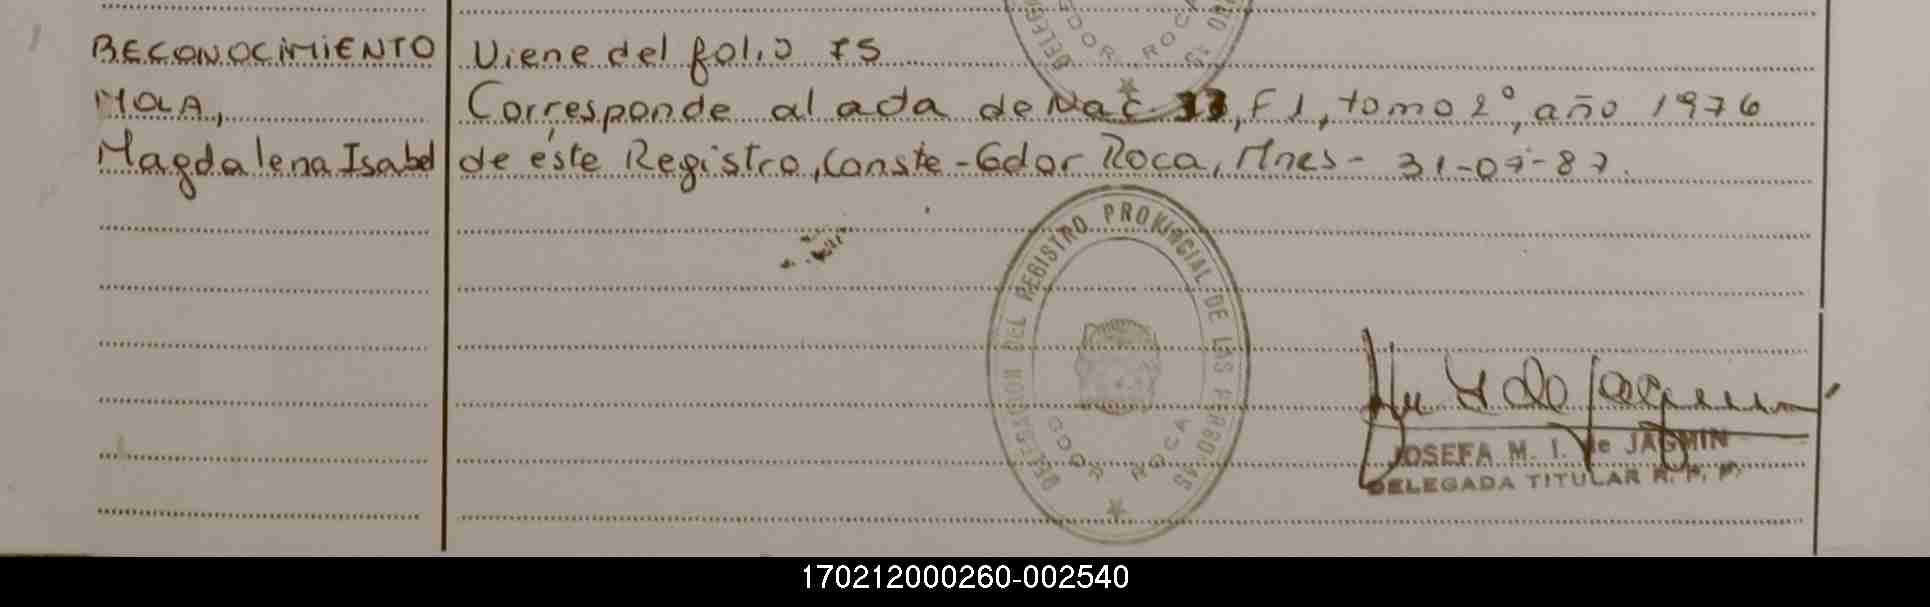 RECONOCIMIENTO
MOLA,
Magdalena Isabel
Viene del folio 75
Corresponde al acta de Nac 11, F 1, tomo 2º, año 1976
de éste Registro, Conste-Gdor Roca, Mnes- 31-07-87.
DELEGACION DEL REGISTRO PROVINCIAL DE LAS PERSONAS
GDOR ROCA
JOSEFA M. I. de JAGMIN
DELEGADA TITULAR R. P. P.
170212000260-002540